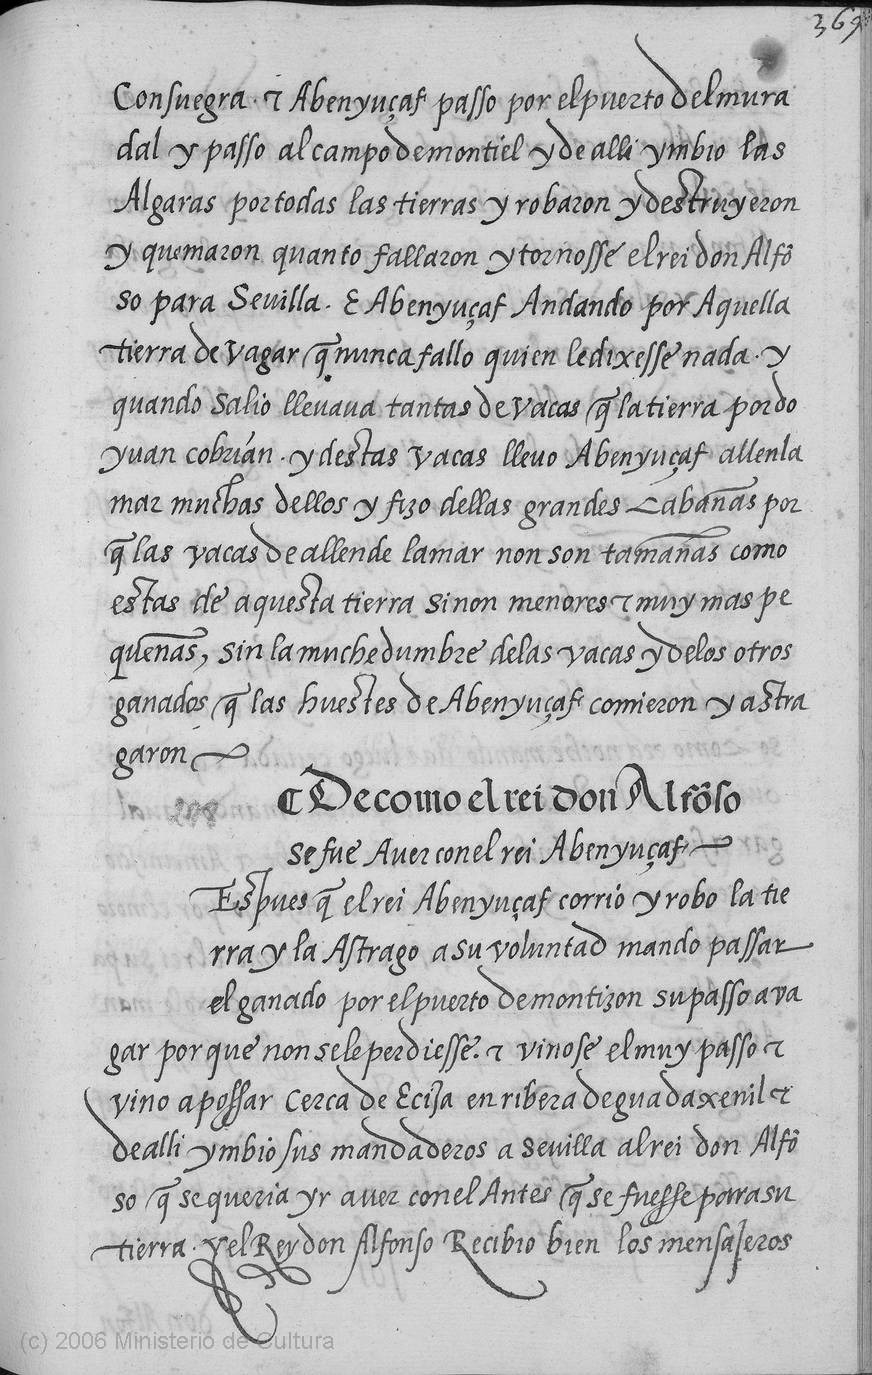 369
Consuegra · ⁊ Abenyuçaf passo por el puerto del mura
dal y passo al campo de montiel y de alli ymbio las
Algaras por todas las tierras y robaron y destruyeron
y quemaron quanto fallaron y tornosse el rei don Alfõ
so para Sevilla · E Abenyuçaf Andando por Aquella
tierra de vagar q̃ nunca fallo quien le dixesse nada · y
quando salio llevava tantas de vacas q̃ la tierra por do
yvan cobrian · y destas vacas llevo Abenyuçaf allenla
mar muchas dellos y fizo dellas grandes Cabañas por
q̃ las vacas de allende la mar non son tamañas como
estas de aquesta tierra sinon menores ⁊ muy mas pe
queñas, sin la muchedumbre de las vacas y de los otros
ganados q̃ las huestes de Abenyuçaf comieron y astra
garon
298
¶ De como el rei don Alfõso
se fue Aver con el rei Abenyuçaf
Espues q̃ el rei Abenyuçaf corrio y robo la tie
rra y la Astrago a su voluntad mando passar
el ganado por el puerto de montizon su passo a va
gar por que non se le perdiesse. ⁊ vinose el muy passo ⁊
vino a possar cerca de Ecija en ribera de guadaxenil ⁊
de alli ymbio sus mandaderos a Sevilla al rei don Alfõ
so q̃ se queria yr a ver con el Antes q̃ se fuesse para su
tierra · y el Rey don Alfonso Recibio bien los mensajeros
(c) 2006 Ministerio de Cultura